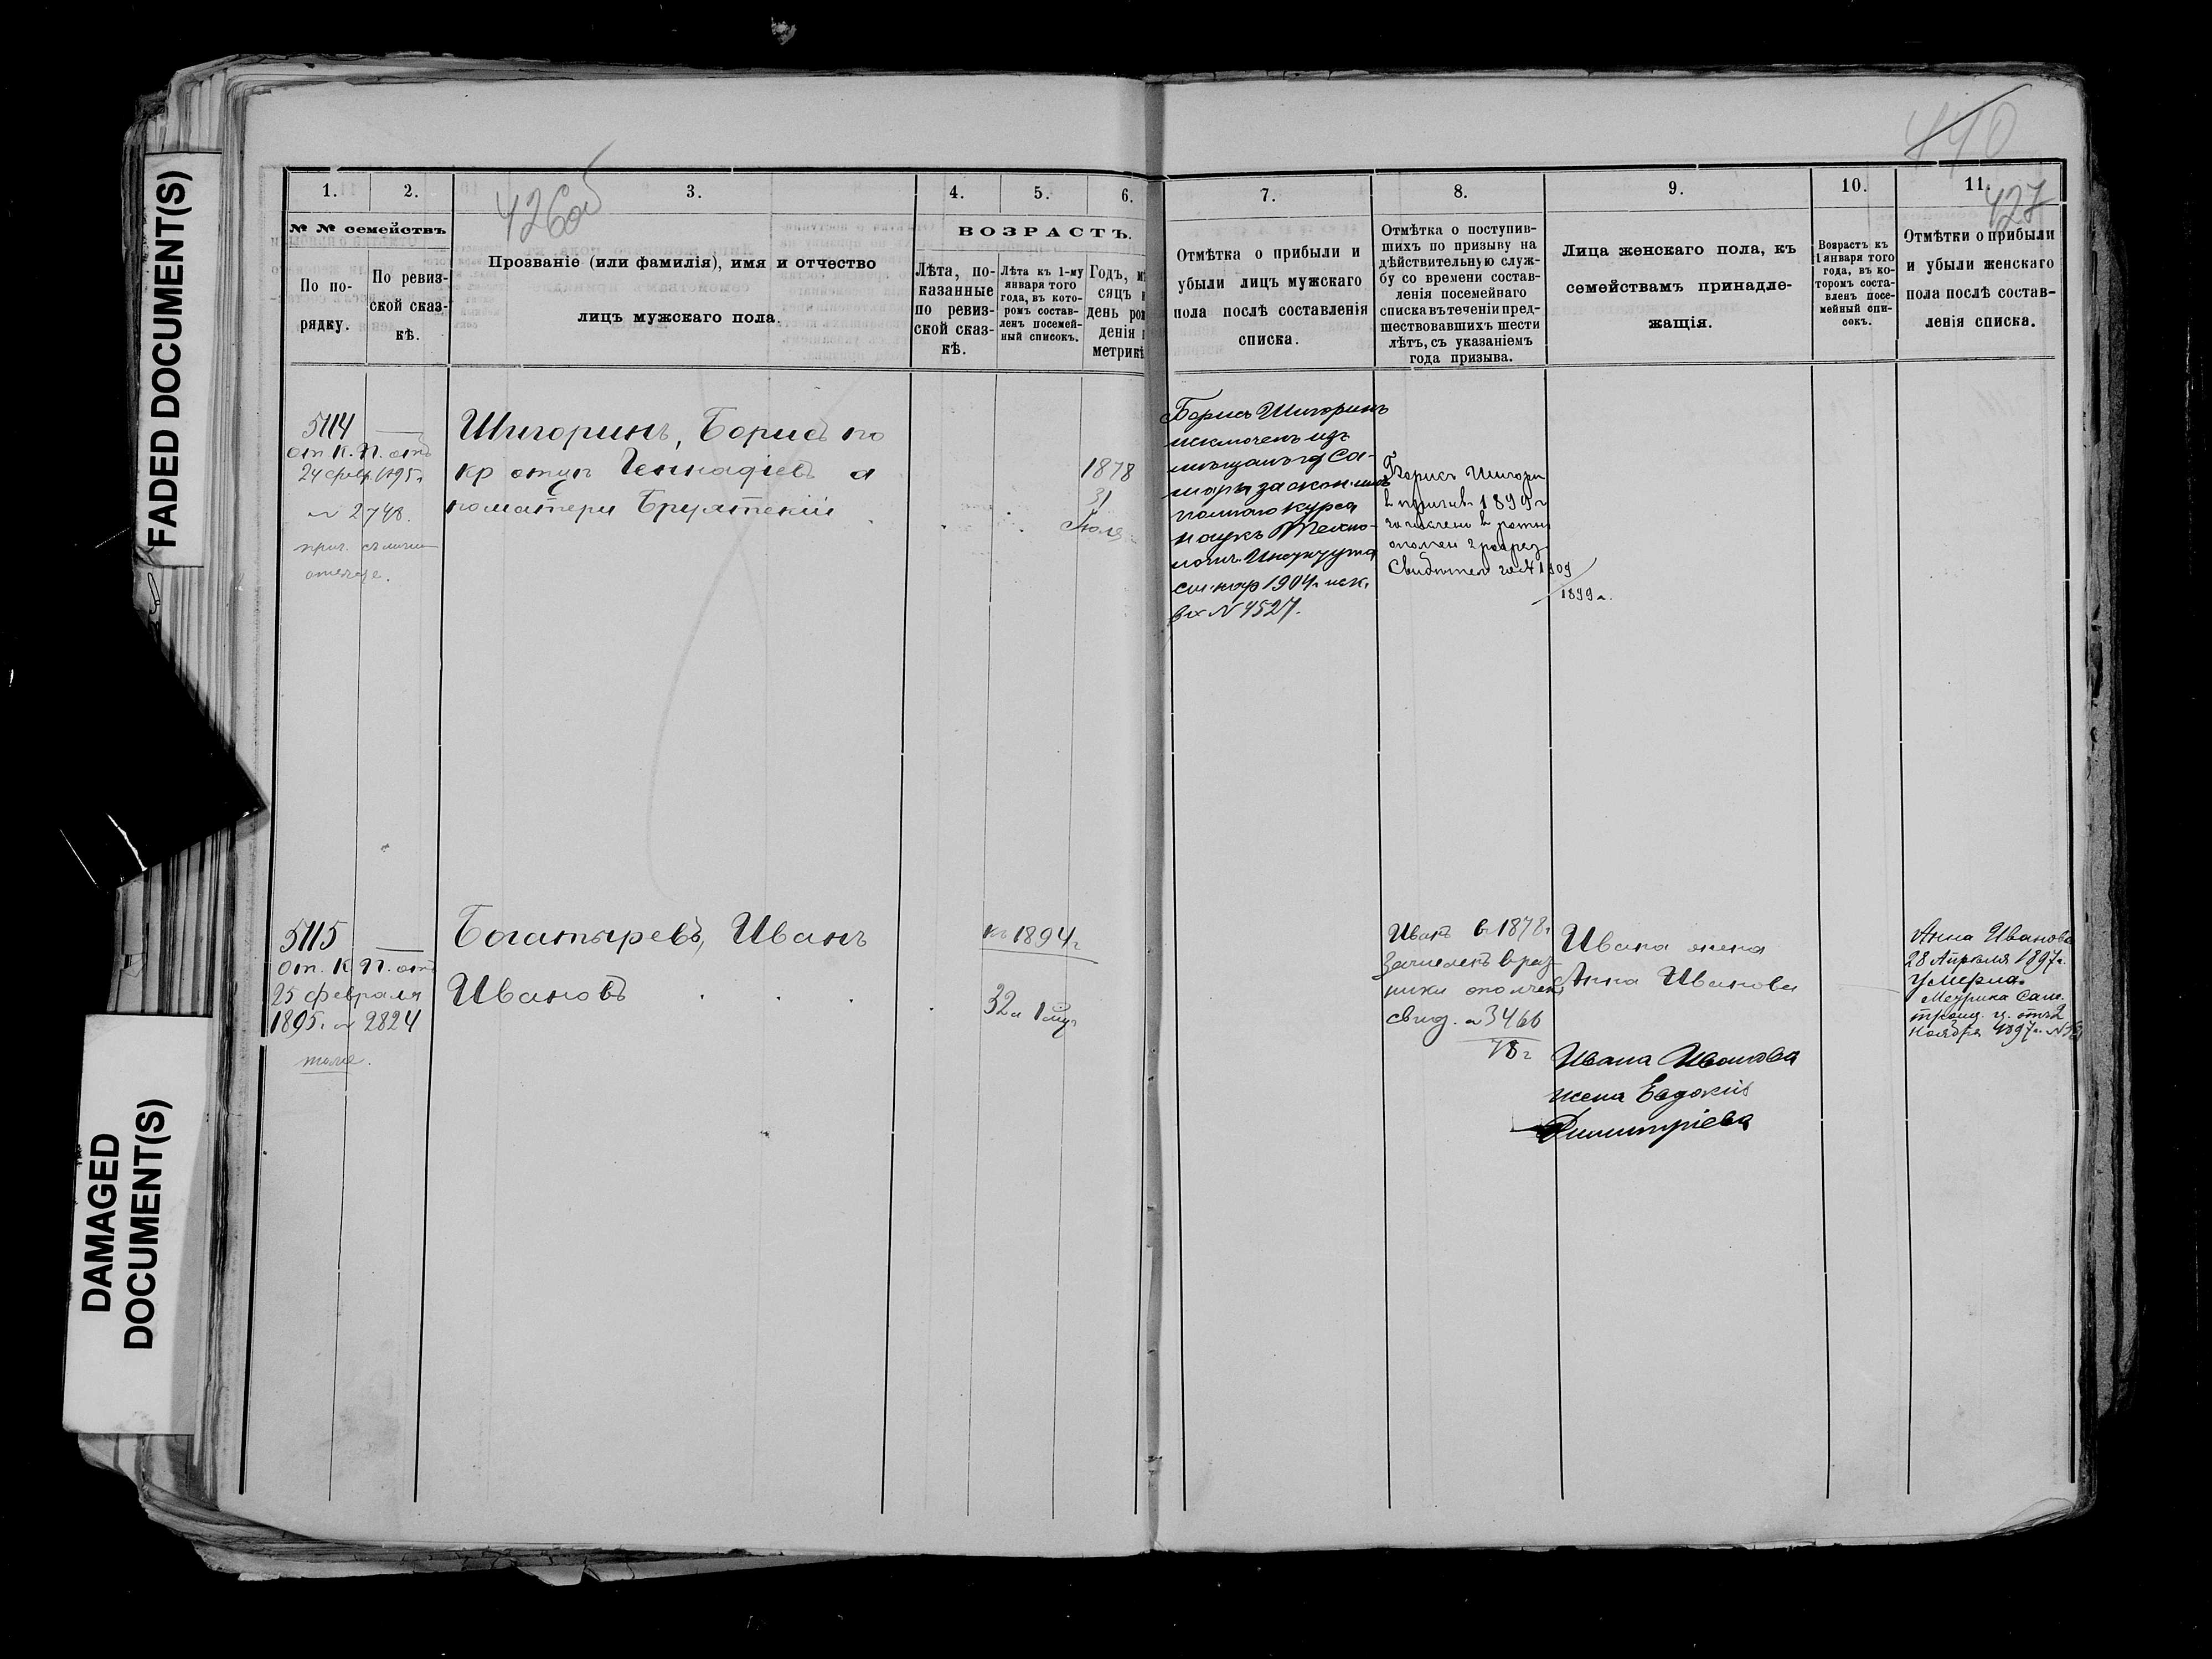 FAADED DOCUMENT(S)
DAMAGED
DOCUMENT(S)
440
427
426об
1.
2.
3.
4.
5.
6.
7.
8.
9.
10.
11.
№ № семействъ
По по-
рядку.
По ревиз-
ской сказ-
кѣ.
Прозваніе (или фамилія), имя и отчество
лицъ мужскаго пола.
ВОЗРАСТЪ.
Лѣта, по-
казанные
по ревиз-
ской сказ-
кѣ.
Лѣта къ 1-му
января того
года, въ кото-
ромъ состав-
ленъ посемей-
ный списокъ.
Годъ, мѣ
сяцъ и
день рож
денія п
метрикѣ
Отмѣтка о прибыли и
убыли лицъ мужскаго
пола послѣ составленія
списка.
Отмѣтка о поступив-
шихъ по призыву на
дѣйствительную служ-
бу со времени состав-
ленія посемейнаго
списка въ теченіи пред-
шествовавшихъ шести
лѣтъ, съ указаніемъ
года призыва.
Лица женскаго пола, къ
семействамъ принадле-
жащія.
Возрастъ къ
1 января того
года, въ ко-
торомъ соста-
вленъ посе-
мейный спи-
сокъ.
Отмѣтки о прибыли
и убыли женскаго
пола послѣ состав-
ленія списка.
5114
от К. П. отъ
24 февр. 1895 г.
№ 2748.
Шигоринъ, Борисъ по
кр отцу Геннадіевъ а
по матери Бруятскій
1878
31
Іюля
Борисъ Шигоринъ
исключенъ изъ
мѣщанъ г Са-
мары за оконч.
полнаго курса
наукъ Техно-
логич. Института
1904 г. иск.
вх № 4527.
Борисъ Шигори
в призыв 1899 г
зачислен в ратн
ополчен 2 разряд
Свидѣтел № 1909
1899 г.
5115
От. К П. отъ
25 февраля
1895 г. № 2824
тоже.
Богатыревъ, Иванъ
Ивановъ
къ 1894 г
32 г 1 мѣ
Иванъ в 1878 г
зачисленъ в рат
ники ополчен
свид. № 3466
78 г
Ивана жена
Анна Иванова
Ивана Иванова
жена Евдокія
Димитріева
Анна Иванова
28 Апрѣля 1897 г.
умерла.
Метрика Сам.
троиц. ц. отъ 2
ноября 1897 г. №